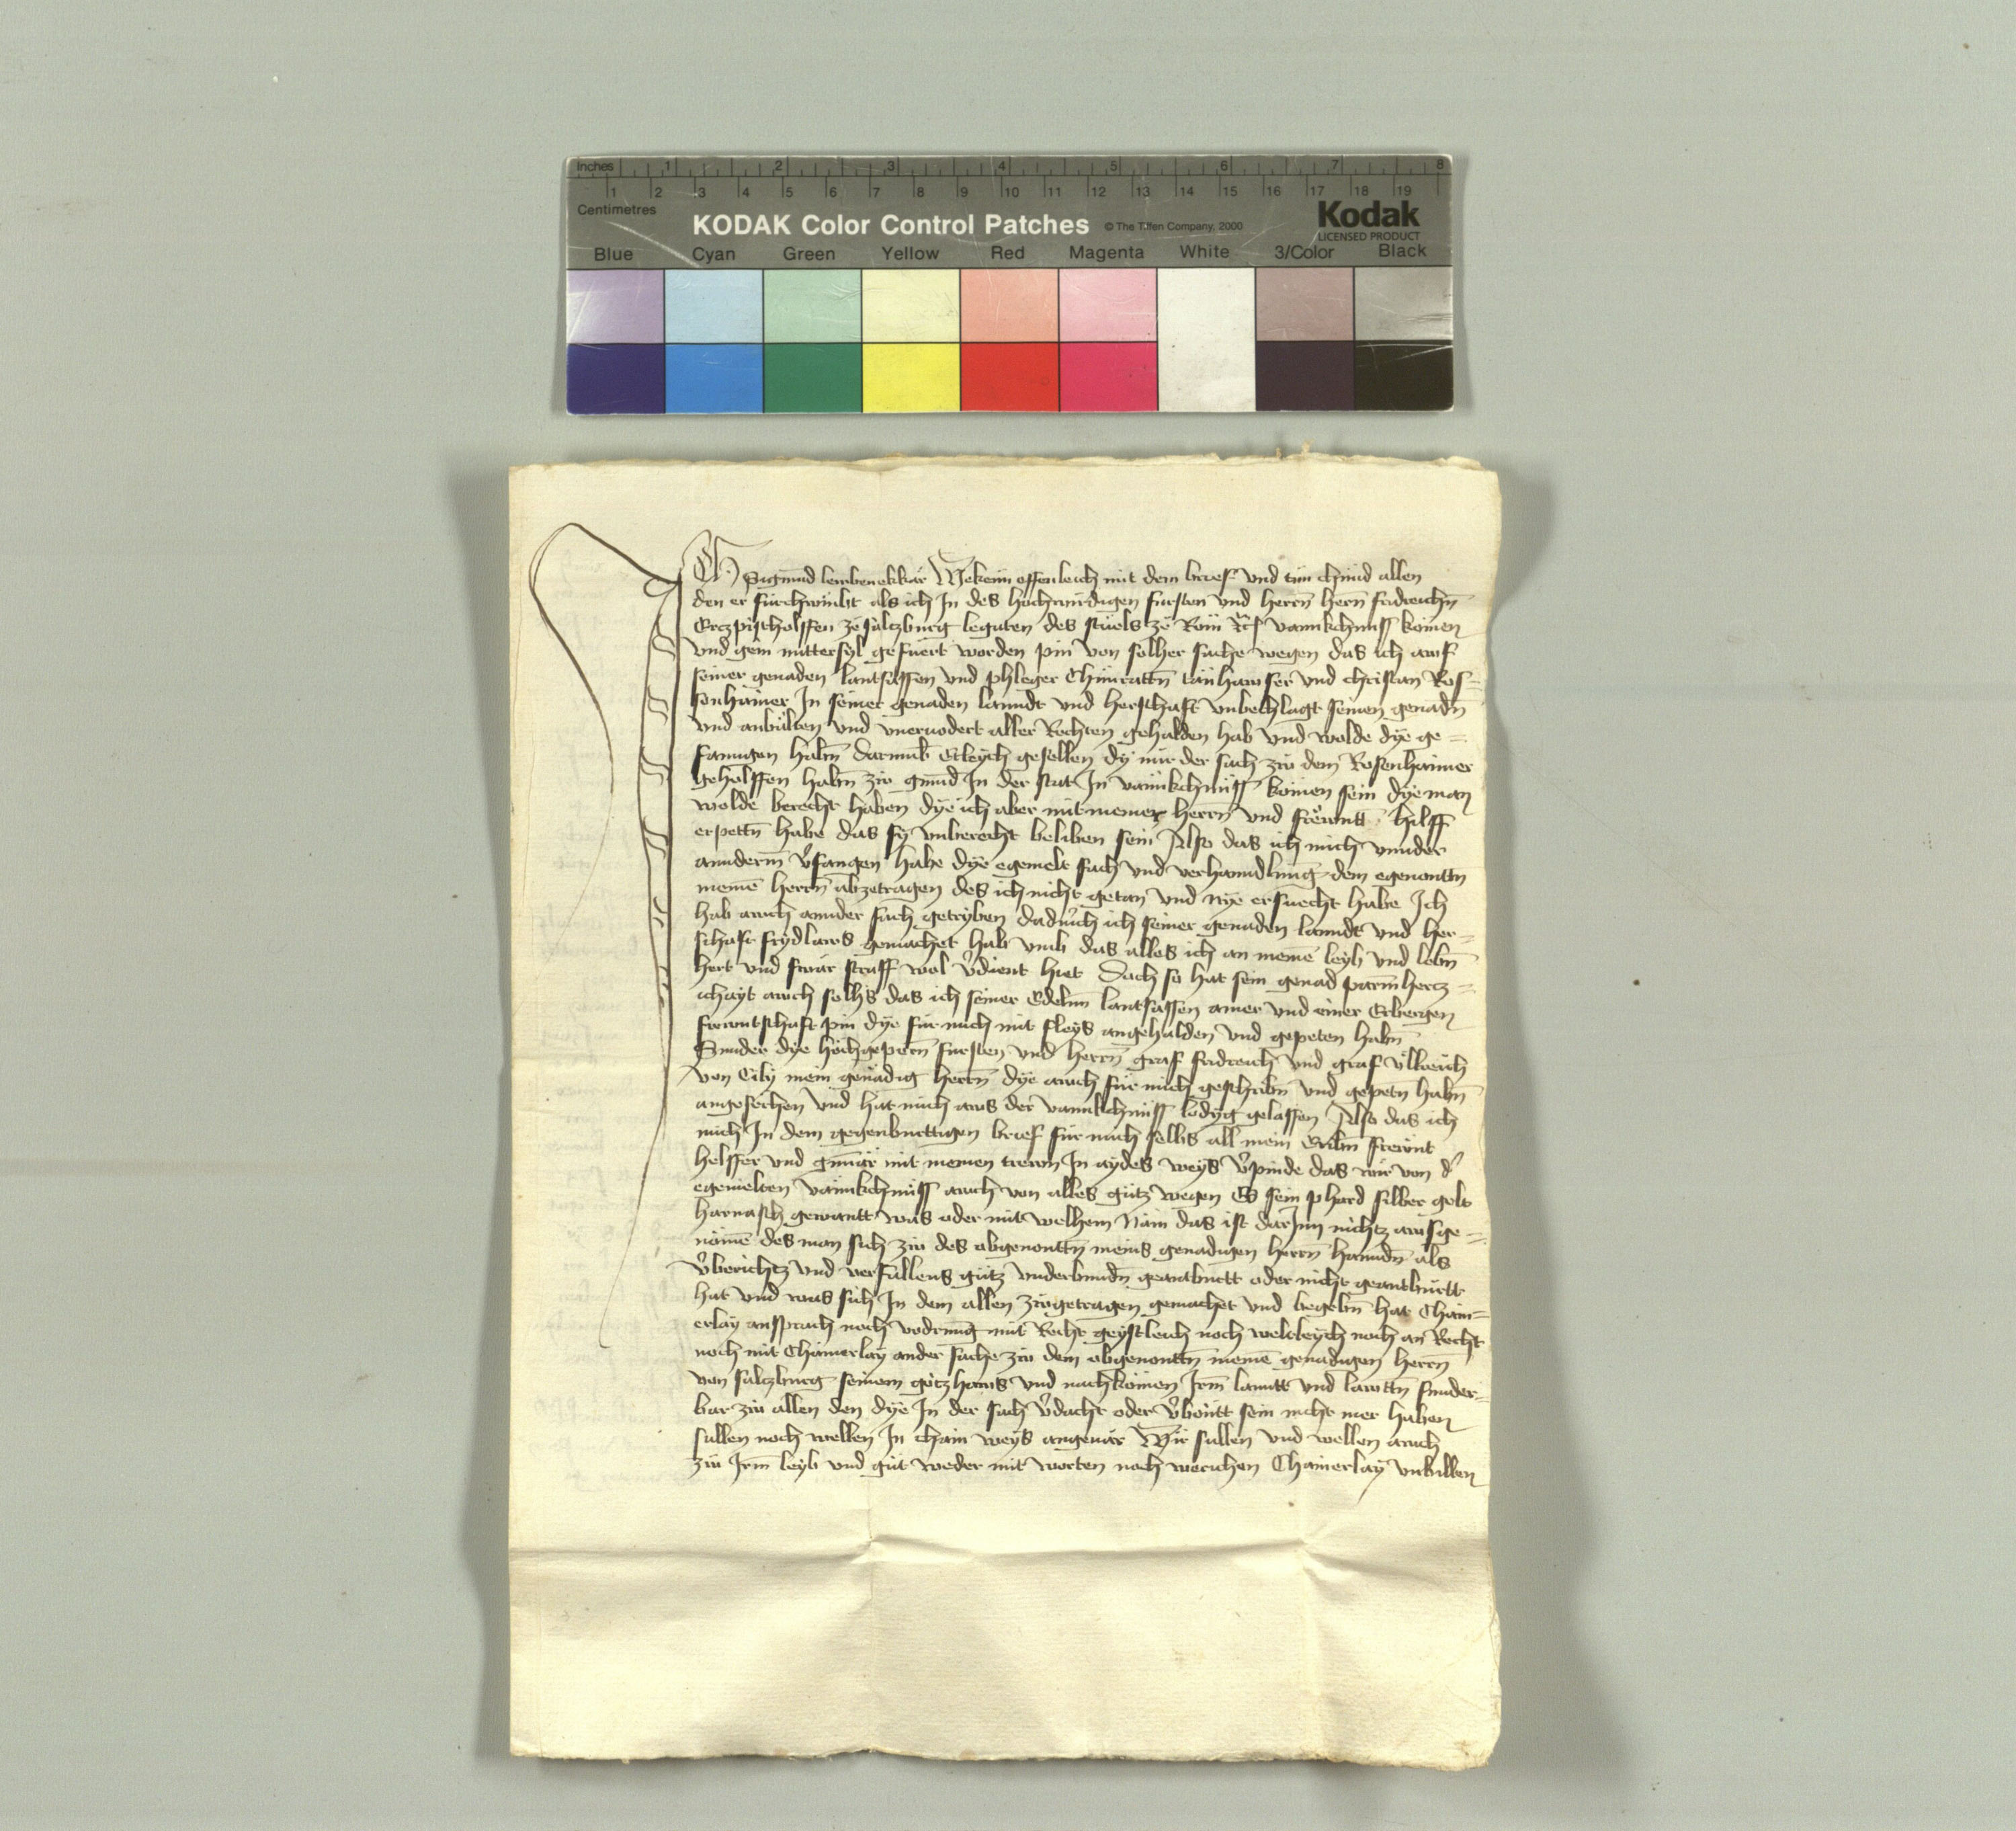 Inches 1 2 3 4 5 6 7 8
1 2 3 4 5 6 7 8 9 10 11 12 13 14 15 16 17 18 19
Centimetres
KODAK Color Control Patches © The Tiffen Company, 2000 Kodak
LICENSED PRODUCT
Blue Cyan Green Yellow Red Magenta White 3/Color Black
Ich Sigmund lembenekkär Bekenn offenleich mit dem brief vnd tun chund allen
den er fürchumbt als ich In des hochwirdigen fursten vnd herrn hern fridreichn
Erczpischolffen ze salczburg legaten des stuels ze Rom vannkchnuss komen
vnd gein mittersyl gefuert worden pin von solher sache wegen das ich auf
seiner genaden lantsässen vnd phleger Chunratn tanhawser vnd christan Ros=
senhaimer In seiner genaden lanndt vnd herschaft vnbechlagt seinen genadn
vnd anbälten vnd vneruodert aller Rechten gehalden hab vnd wolde dye ge=
fanngen habn darumb Etleych gesellen dy mir der sach zu dem Rosenhaimer
geholffen habn zu gmund In der stat In vannkchnüss komen sein dye man
wolde berecht haben dye ich aber mit meiner herrn vnd frewntt hilff
erpettn habe das sy vnberecht beliben sein Also das ich mich vnnder
annderm vfangen habe dye egemelt sach vnd verhanndlung dem egenanttn
meinē herrn abzetragen des ich nicht getan vnd nye ersuecht habe Ich
hab auch annder sach getryben dadurch ich seiner genaden lanndt vnd her=
schaft frydlaws gemachet hab vmb das alles ich an meinē leyb vnd lebn
hert vnd swär straff wol vdient hiet Doch so hat sein genad parmhercz=
ichayt auch solhs das ich seiner Edelnn lantsässen ainer vnd einer Erbergen
frewntschaft pin dye für mich mit fleys angehalden vnd gepeten habn
Sunder dye hochgeporn fursten vnd herrn graf fridreich vnd graf vlreich
von Cily mein genädig herrn dye auch für mich geschribn vnd gepetn habn
angesechen vnd hat mich aws der vannkchnüss ledyg gelassen Also das ich
mich In dem gegenburttigen brief für mich selbs all mein Eribn frewnt
helffer vnd gunär mit meinen trewn In aydes weys vpinde das wir von d
egemelten vannkchnuss auch von alles gutz wegen Es sein phard silber gelt
harnasch gewantt was oder mit welhem nam das ist darInn nichtz ausge=
nomē des man sich zu des obgenanttn meins genadigen herrn hanndn als
vberichtz vnd verfallens gutz vnderbundn geantburtt oder nicht geantburtt
hat vnd was sich In dem allen zugetragen gemachet vnd begebn hat Chain=
erlay ansprach noch vodrung mit Recht geystleich noch weltleych noch an Recht
noch mit Chainerlay ander sache zu dem obgenanttn meinē genadigen herrn
von salczburg seinem gotzhaws vnd nachkomen Irm lanntt vnd lawttn sunder=
bar zu allen den dye In der sach vdacht oder vbontt sein nicht mer haben
sullen noch wellen In chain weys angeuär Wir sullen vnd wellen auch
zu Irm leyb vnd gut weder mit worten noch werichen Chainerlay vnbillen